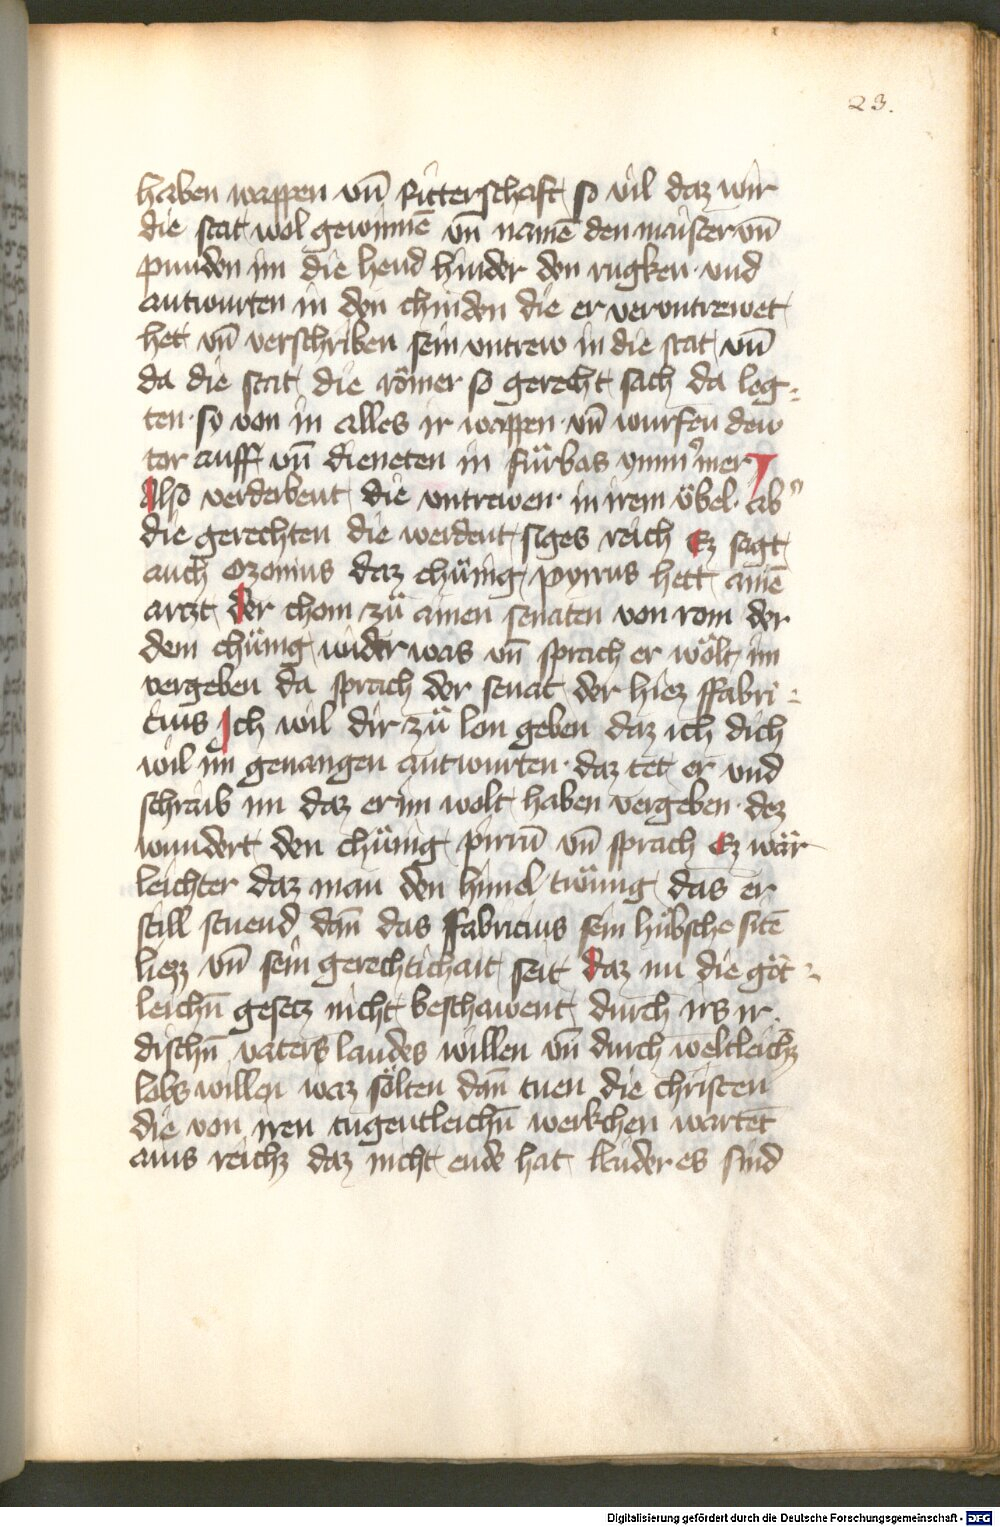 23.
haben wappen vn̄ ritterschaft so vil daz wir
die stat wol gewinnē vn̄ namē den maister vn̄
punden im die hend hinder den rugken · vnd
antwurten in den chinden die er verontrewet
het vn̄ verschriben sein vntrew in die stat vn̄
da die stat die römer so gerecht sach da leg-
ten · so von in alles ir wappen · vn̄ wurfen dew
tor auff vn̄ dieneten in fürbas ymm̾mer
Also verderbent die vntrewen · in irem übel · Ab̾
die gerechten die werdent siges reich Ez sagt
auch Ozonius daz chünig pyrrus hett ainē
arczt der chom zů ainen senaten von rom der
dem chünig wider was vn̄ sprach er wölt im
vergeben da sprach der senat der hiez ffabri-
cius Ich wil dir zů lon geben daz ich dich
wil im geuangen antwurten · daz tet er vnd
schraib im daz er im wolt haben vergeben · dez
wundert den chünig pirrū vn̄ sprach Ez wär
leichter daz man den himel twüng das er
still stuend dan̄ das ffabricius sein hübsche sitē
liezz vn̄ sein gerechtichait seit daz nu die göt-
leichn̄ gesetz nicht beschawent durch irs ir
dischn̄ vaters landes willen vn̄ durch weltleichz
lobs willen waz sölten dan̄ tuen die christen
die von iren tugentleichn̄ werkchen wartēt
ains reichz daz nicht ende hat leider es sind
Digitalisierung gefördert durch die Deutsche Forschungsgemeinschaft - DFG